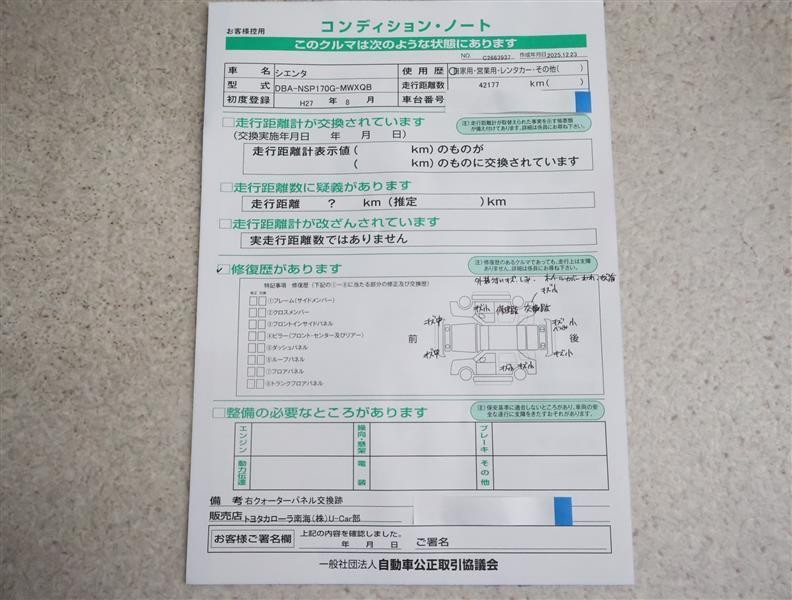 お客様控用
コンディション・ノート
このクルマは次のような状態にあります
NO. C2663937 作成年月日 2025.12.23
車名 シエンタ 使用歴 自家用・営業用・レンタカー・その他( )
型式 DBA-NSP170G-MWXQB 走行距離数 42177 km( )
初度登録 H27 年 8 月 車台番号
□走行距離計が交換されています
(交換実施年月日 年 月 日)
注)走行距離計が取替えられた事実を示す帳票類
が備え付けてあります。詳細は係員にお尋ね下さい。
走行距離計表示値( km)のものが
( km)のものに交換されています
□走行距離数に疑義があります
走行距離 ? km(推定 )km
□走行距離計が改ざんされています
実走行距離数ではありません
□修復歴があります
注)修復歴のあるクルマであっても、走行上は支障
ありません。詳細は係員にお尋ね下さい。
特記事項・修復歴(下記の①~⑧に当たる部分の修正及び交換歴)
修正 交換
①フレーム(サイドメンバー)
②クロスメンバー
③フロントインサイドパネル
④ピラー(フロント・センター及びリアー)
⑤ダッシュパネル
⑥ルーフパネル
⑦フロアパネル
⑧トランクフロアパネル
前
後
キズ小
交換跡
キズ中
キズ小
キズ中
キズ小
キズ小
□整備の必要なところがあります
注)保安基準に適合しないところがあり、車両の安
全な運行に支障をきたすおそれがあります。
エンジン 操向・懸架 ブレーキ
動力伝達 電装 その他
備考 右クォーターパネル交換跡
販売店 トヨタカローラ南海(株)U-Car部
お客様ご署名欄 上記の内容を確認しました。
年 月 日 ご署名
一般社団法人 自動車公正取引協議会